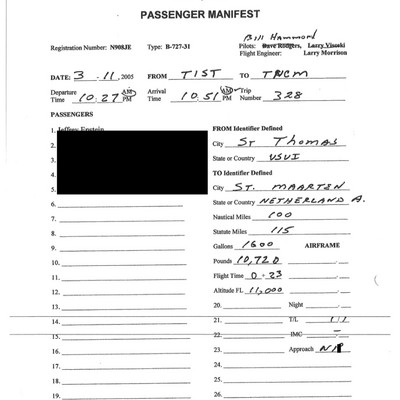 PASSENGER MANIFEST
Bill Hammond
Registration Number: N908JE Type: B-727-31 Pilots: Dave Rodgers, Larry Visoski
Flight Engineer: Larry Morrison
DATE: 3-11, 2005 FROM TIST TO TNCM
Departure Time 10:27 AM PM Arrival Time 10:51 AM PM Trip Number 328
PASSENGERS
1. Jeffrey Epstein FROM Identifier Defined
2. City St Thomas
3. State or Country USVI
4. TO Identifier Defined
5. City ST. MAARTEN
6. State or Country NETHERLAND A.
7. Nautical Miles 100
8. Statute Miles 115
9. Gallons 1600 AIRFRAME
10. Pounds 10,720
11. Flight Time 0+23
12. Altitude FL 11,000
13. 20. Night
14. 21. T/L 1/1
15. 22. IMC -
16. 23. Approach
17. 24.
18. 25.
19. 26.